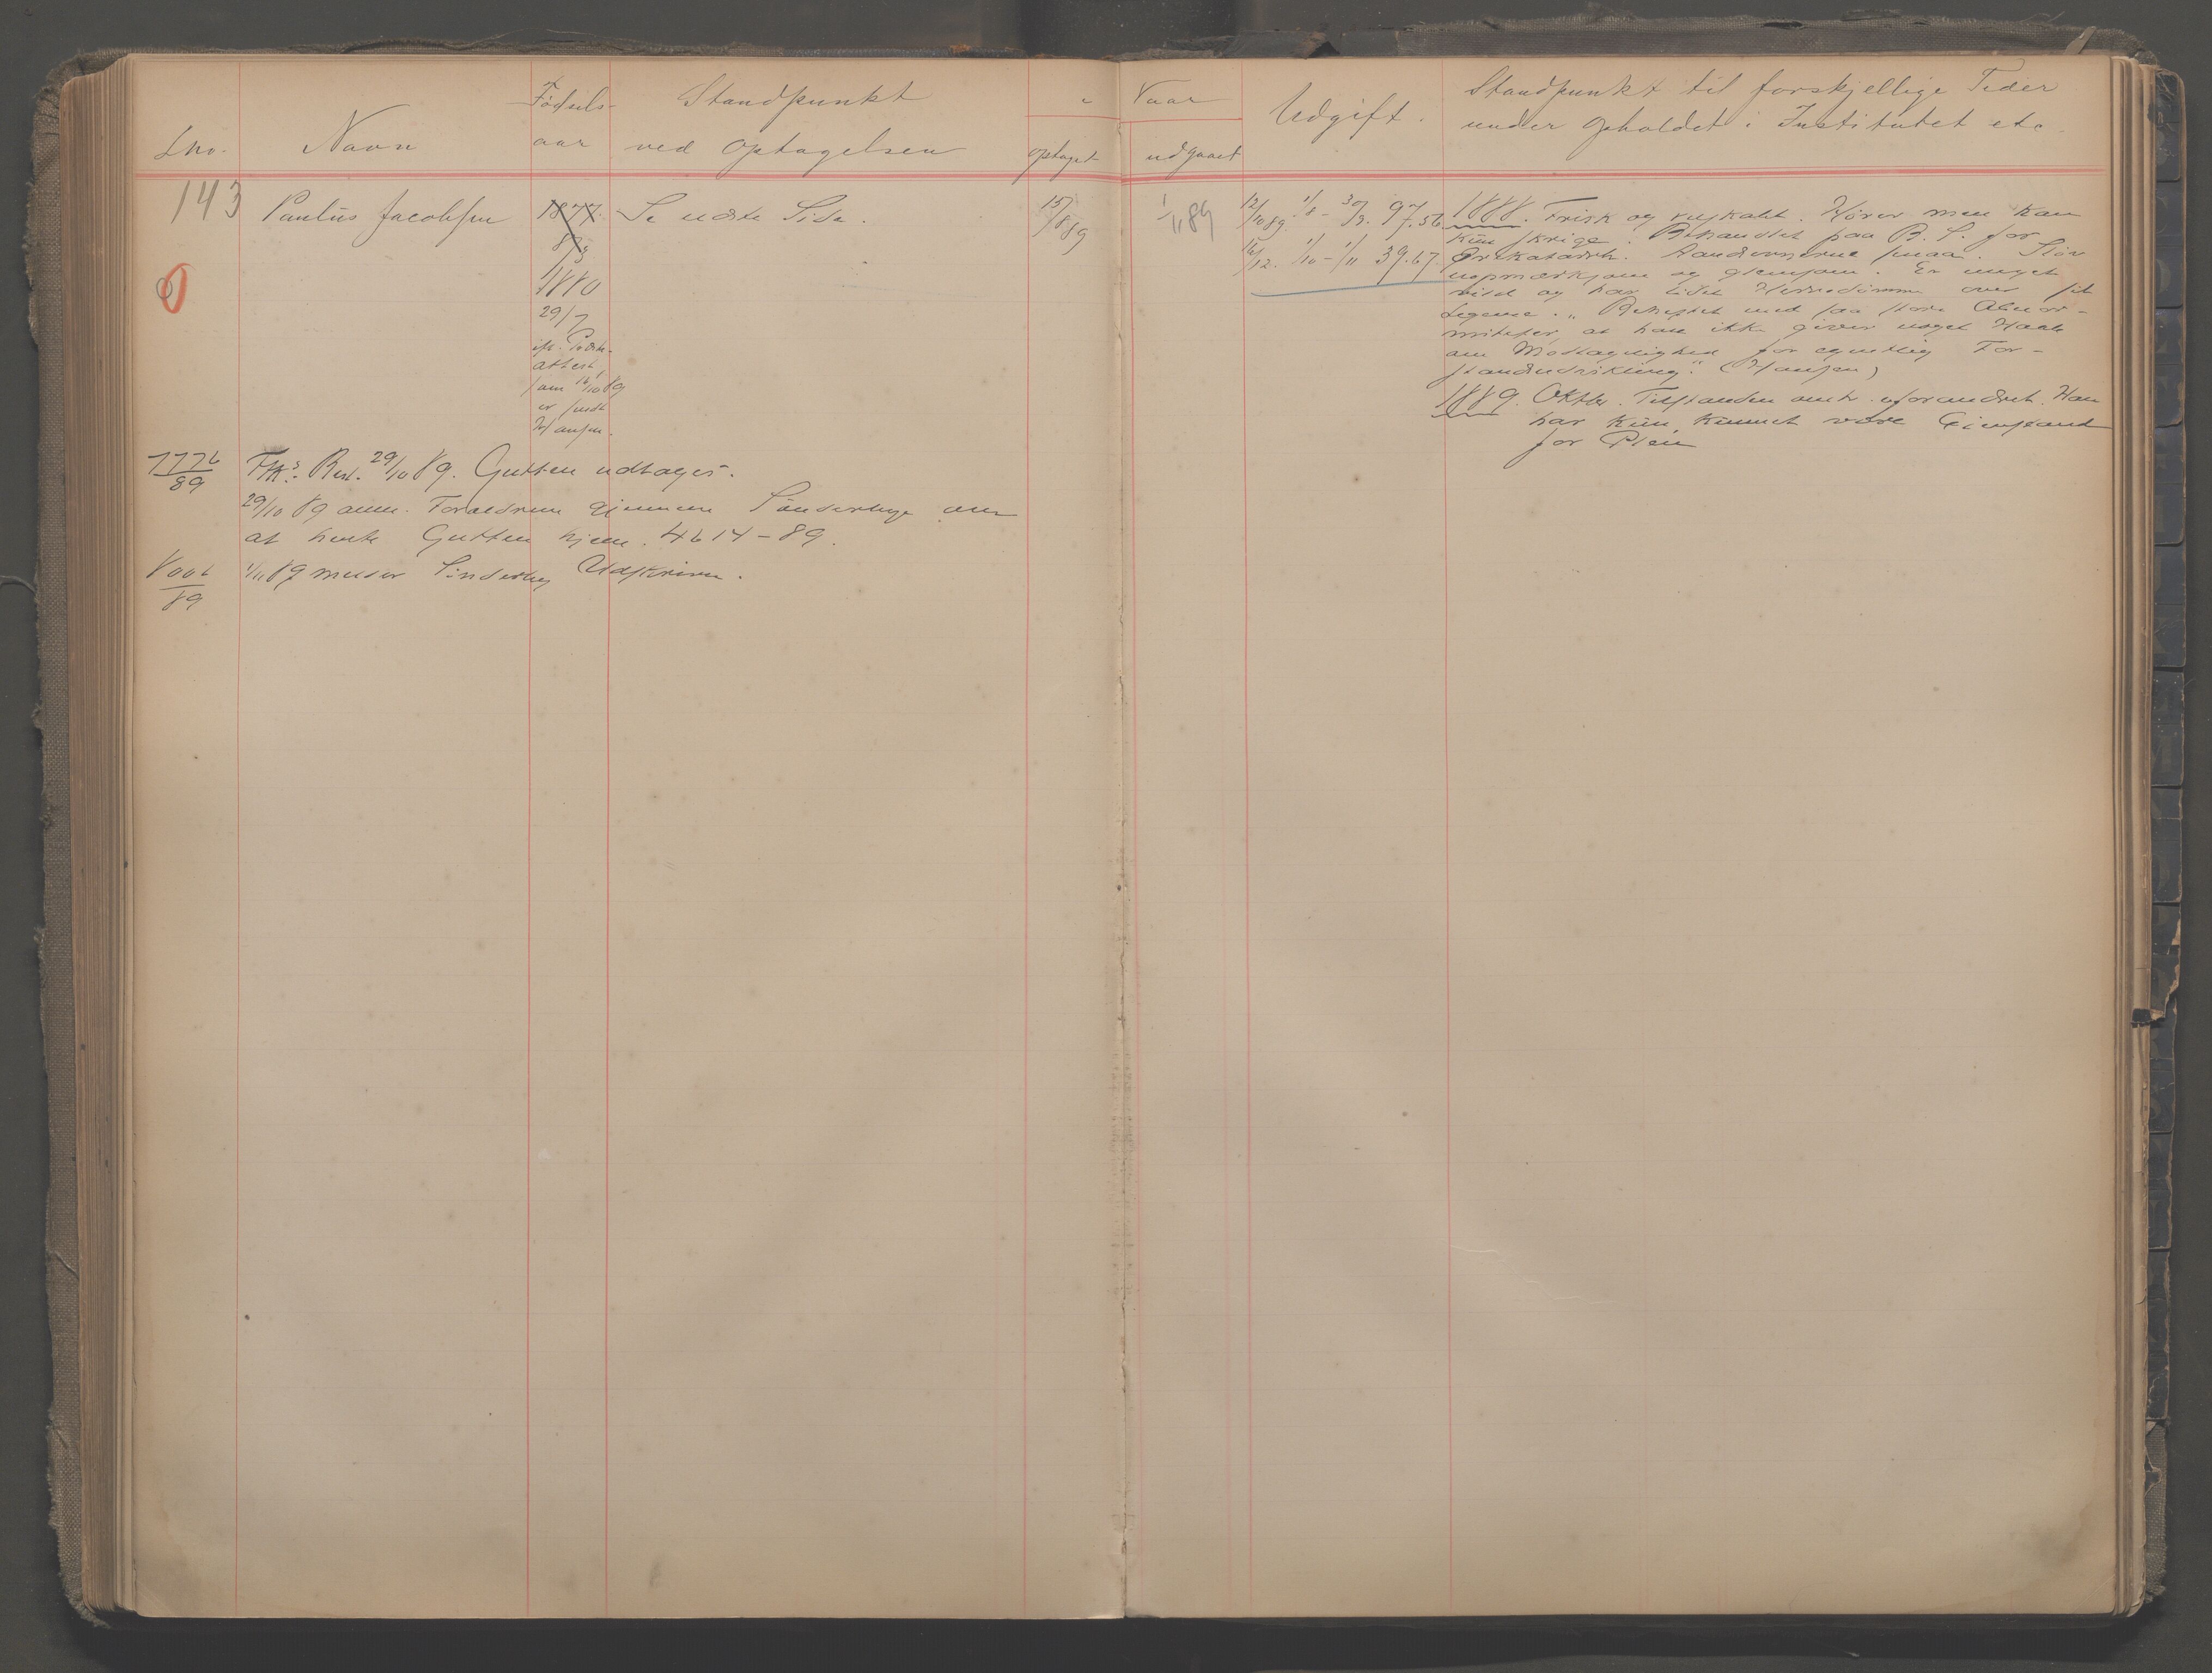 Lno.
Navn
Fødsels-
aar
Standpunkt
ved Optagelsen
optaget
Naar
udgaaet
Udgift.
Standpunkt til forskjellige Tider
under Opholdet i Institutet etc.
143
Paulus Jacobsen
1877.
8/3
1880
29/7
attest
er sendt
Hansen.
Se næste Side.
15/8 89
1/11 89
12/10 89. 1/8 - 30/9. 97.56
16/12. 1/10 - 1/11 39.67
1888. Frisk og velskabt. Hører men kan
kun skrige. Behandlet paa B. S. for
Ørekatarrh. Aandsevnerne smaa. Sløv
uopmærksom og glemsom. Er meget
vild og har lidet Herredømme over sit
Legeme. "Beheftet med saa store Abnor-
miteter, at han ikke giver noget Haab
om Modtagelighed for egentlig For-
standsudvikling." (Hansen)
1889. Oktbr. Tilstanden omtr. uforandret. Han
har kun kunnet være Gjenstand
for Pleie
7776/89
29/10 89. Gutten udtages.
29/10 89 anm. Forældrene gjennem Sønderley om
at hente Gutten hjem. 4614-89.
8006/89
1/11 89 melder Sønderley Udskriven.